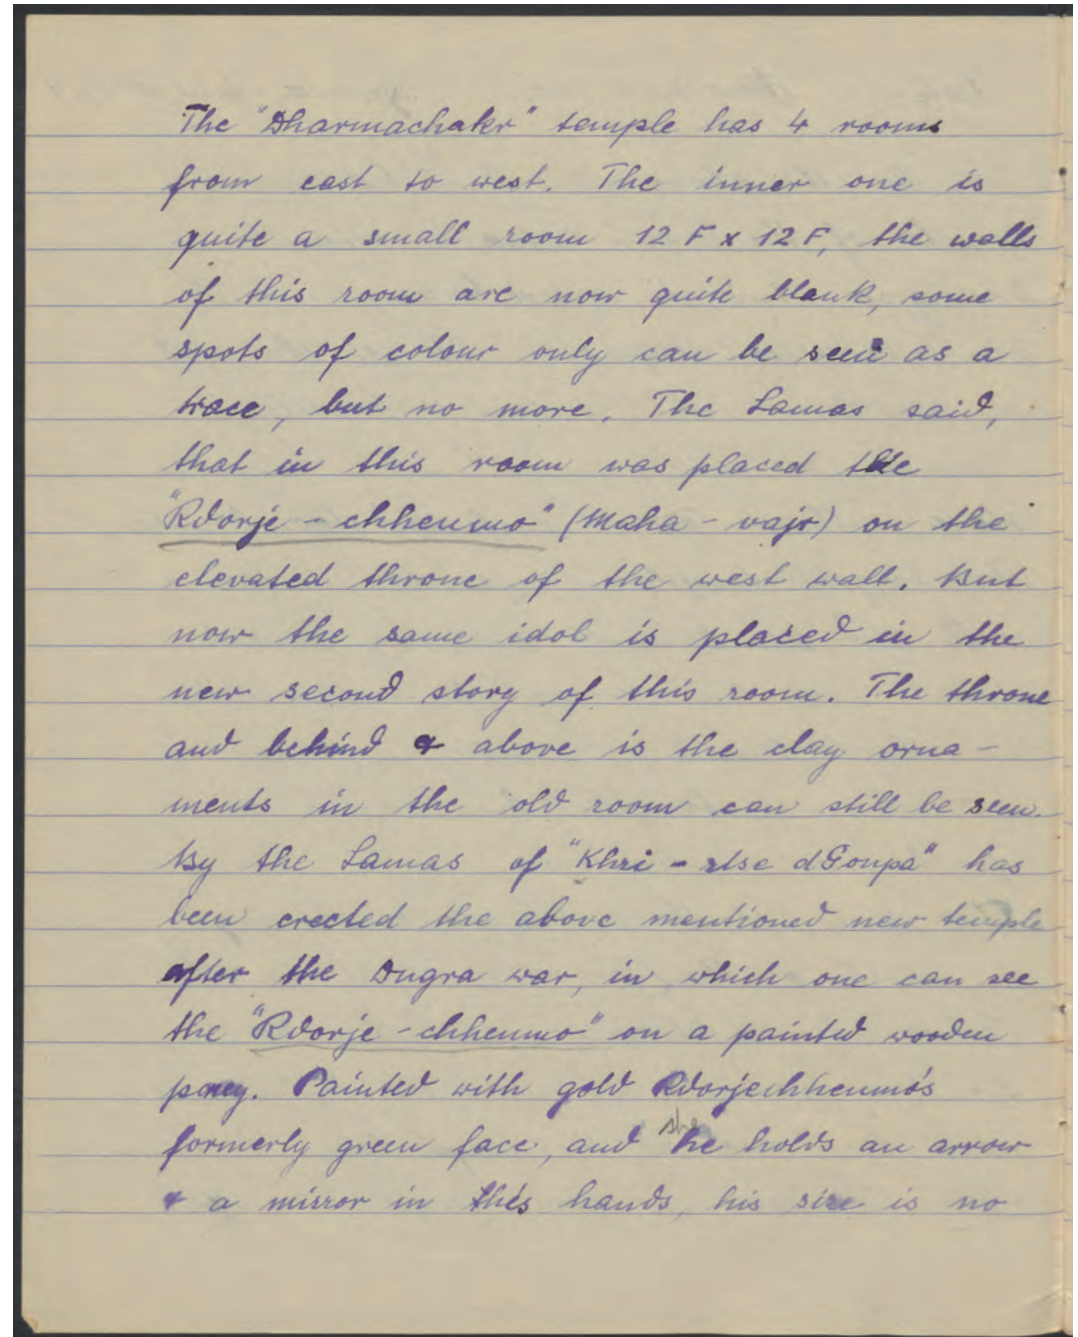 The "Dharmachakr" temple has 4 rooms
from east to west. The inner one is
quite a small room 12 F x 12 F, the walls
of this room are now quite blank, some
spots of colour only can be seen as a
trace, but no more. The Lamas said,
that in this room was placed the
"Rdorje - chhenmo" (Maha - vajr) on the
elevated throne of the west wall. But
now the same idol is placed in the
new second story of this room. The throne
and behind & above is the clay orna-
ments in the old room can still be seen.
By the Lamas of "Khri - rtse dGonpa" has
been erected the above mentioned new temple
after the Dugra war, in which one can see
the "Rdorje - chhenmo" on a painted wooden
Painted with gold Rdorjechhenmo's
formerly green face, and she holds an arrow
& a mirror in this hands, his size is no